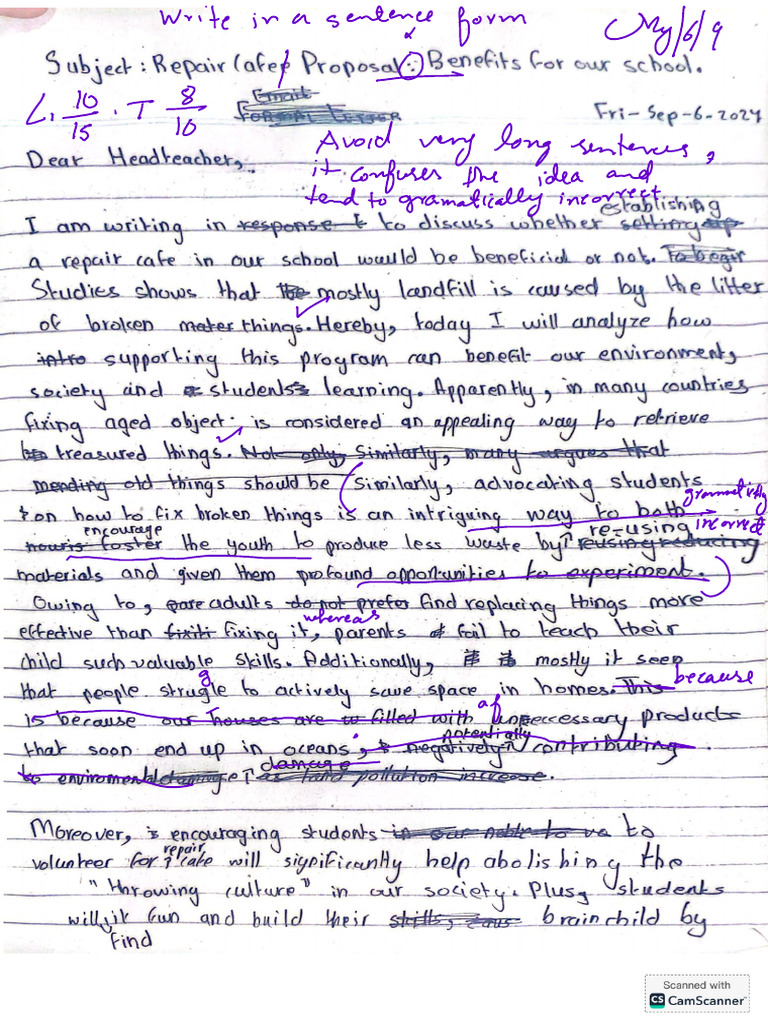 Write in a sentence form
Subject: Repair Cafe Proposal: Benefits for our school.
L. 10/15 . T 8/10
Email
Formal Letter
Fri-Sep-6-2024
Dear Headteacher,
Avoid very long sentences,
it confuses the idea and
tend to gramatically incorrect
establishing
I am writing in response t to discuss whether setting up
a repair cafe in our school would be beneficial or not. To begin
Studies shows that the mostly landfill is caused by the litter
of broken mater things. Hereby, today I will analyze how
intro supporting this program can benefit our environment,
society and students learning. Apparently, in many countries
fixing aged object is considered an appealing way to retrieve
treasured things. Not only, Similarly, many argues that
mending old things should be (Similarly, advocating students
on how to fix broken things is an intriguing way to both grammatically
encourage re-using incorrect
foster the youth to produce less waste by reusing reducing
materials and given them profound opportunities to experiment.)
Owing to, adults do not prefer find replacing things more
whereas
effective than fixing it, parents fail to teach their
child such valuable skills. Additionally, mostly it seen
g
that people strugle to actively save space in homes. This because
is because our houses are filled with of unneccessary products
potentially
that soon end up in oceans, negatively contributing
damage
to enviromental damage as land pollution increase.
Moreover, encouraging students in our to
repair
volunteer for cafe will significantly help abolishing the
"throwing culture" in our society. Plus, students
will it fun and build their skills, brainchild by
find
Scanned with
CS CamScanner